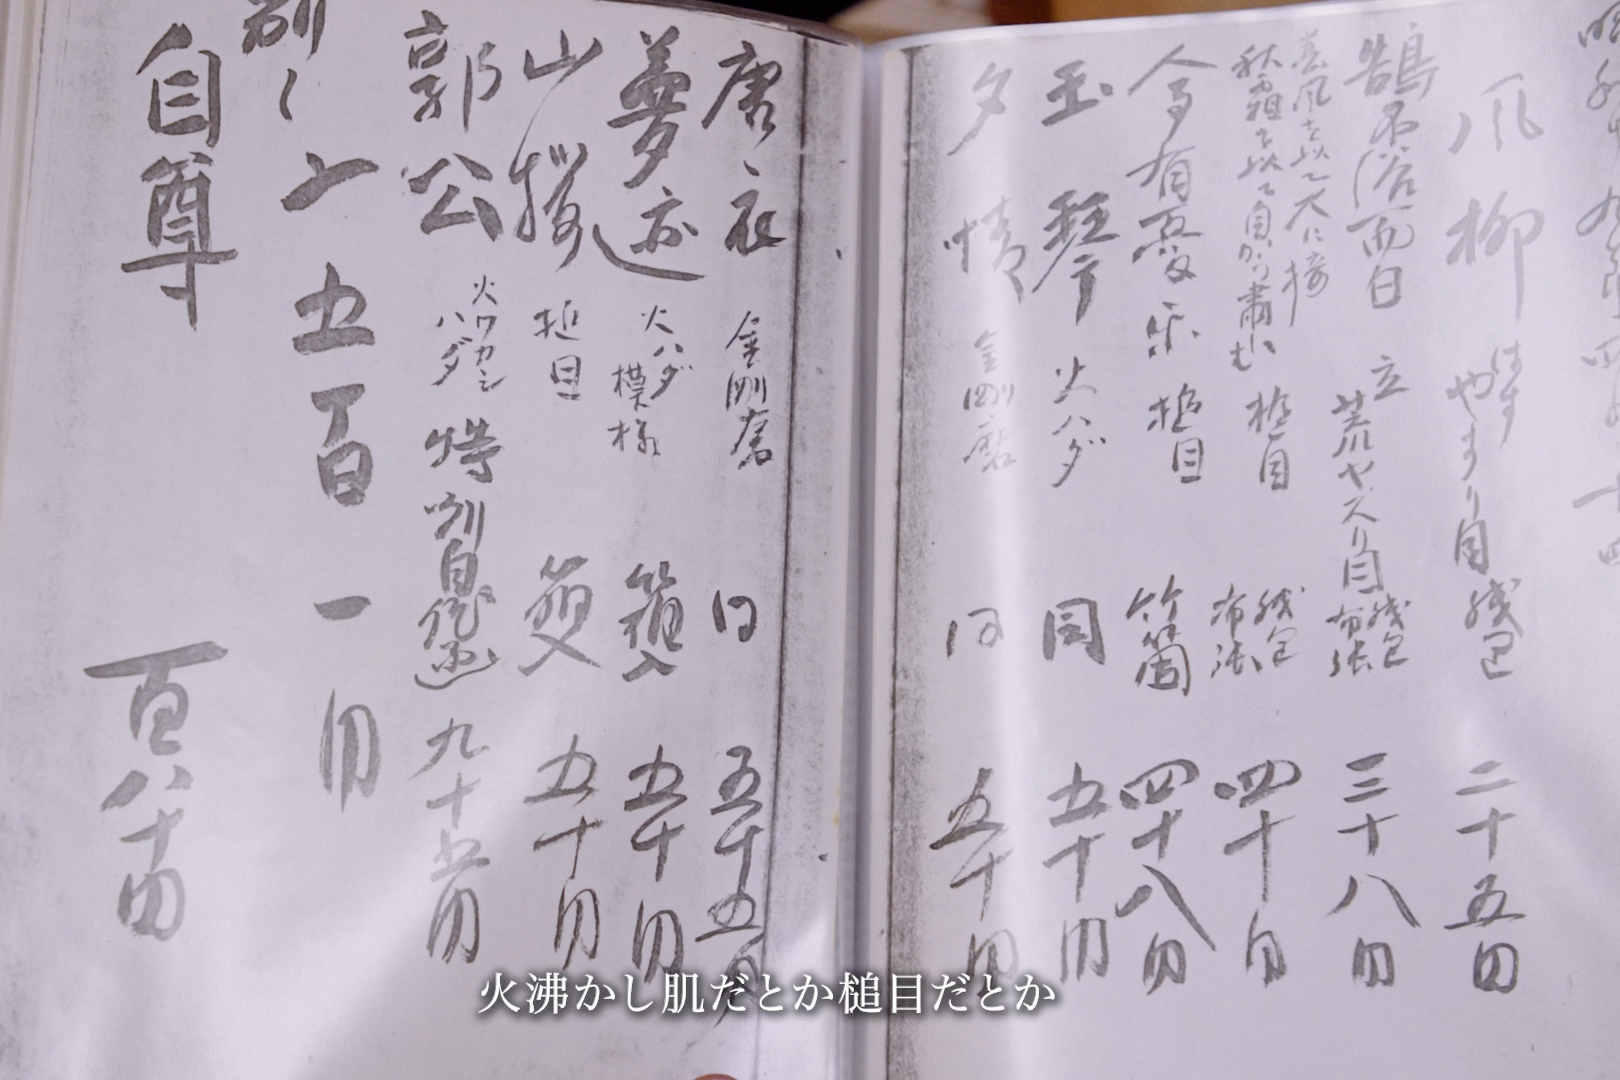 風柳 はすやすり目 残包 二十五円
鵠不浴而白 立荒ヤスリ目 残包布張 三十八円
春風を以て人に接
秋霜を以て自から肅む 槌目 残包布張 四十円
今有憂楽 槌目 竹筒 四十八円
玉琴 火ハダ 同 五十円
夕情 金剛磨 同 五十円
唐衣 金剛磨 同 五十五円
夢迹 火ハダ模様 箱入 五十円
山櫻 槌目 箱入 五十円
郭公 火ワカシハダ 特別自 九十五円
五百一
別
自尊 百八十円
火沸かし肌だとか槌目だとか